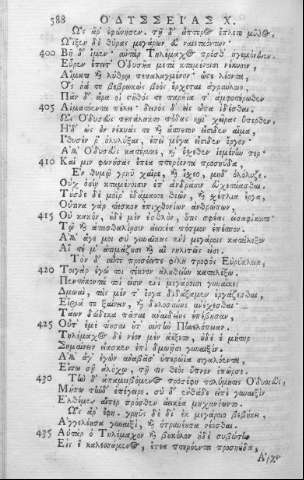 588 ΟΔΥΣΣΕΙΑΣ Χ.
Ὣς ἄρ' ἐφώνησεν· τῇ δ' ἄπτερος ἔπλετο μῦθος.
Ὤϊξεν δὲ θύρας μεγάρων εὖ ναιεταόντων·
400 Βῆ δ' ἴμεν· αὐτὰρ Τηλέμαχος πρόσθ' ἡγεμόνευεν.
Εὗρεν ἔπειτ' Ὀδυσῆα μετὰ κταμένοισι νέκυσσιν
Αἵματι καὶ λύθρῳ πεπαλαγμένον· ὥστε λέοντα,
Ὅς ῥά τε βεβρωκὼς βοὸς ἔρχεται ἀγραύλοιο·
Πᾶν δ' ἄρα οἱ στῆθός τε παρήϊά τ' ἀμφοτέρωθεν
405 Αἱματόεντα πέλει· δεινὸς δ' εἰς ὦπα ἰδέσθαι·
Ὣς Ὀδυσεὺς πεπάλακτο πόδας καὶ χεῖρας ὕπερθεν.
Ἡ δ' ὡς οὖν νέκυάς τε καὶ ἄσπετον εἴσιδεν αἷμα,
Ἴθυσέν ῥ' ὀλολύξαι, ἐπεὶ μέγα εἴσιδεν ἔργον·
Ἀλλ' Ὀδυσεὺς κατέρυκε, καὶ ἔσχεθεν ἱεμένην περ·
410 Καί μιν φωνήσας ἔπεα πτερόεντα προσηύδα·
Ἐν θυμῷ γρηῦ χαῖρε, καὶ ἴσχεο, μηδ' ὀλόλυζε.
Οὐχ ὁσίη κταμένοισιν ἐπ' ἀνδράσιν εὐχετάασθαι.
Τούσδε δὲ μοῖρ' ἐδάμασσε θεῶν, καὶ σχέτλια ἔργα,
Οὔτινα γὰρ τίεσκον ἐπιχθονίων ἀνθρώπων,
415 Οὐ κακὸν, οὐδὲ μὲν ἐσθλὸν, ὅτις σφέας εἰσαφίκοιτο·
Τῷ καὶ ἀτασθαλίῃσιν ἀεικέα πότμον ἐπέσπον.
Ἀλλ' ἄγε μοι σὺ γυναῖκας ἐνὶ μεγάροις κατάλεξον
Αἵ τέ μ' ἀτιμάζουσι καὶ αἳ νηλιτεῖς εἰσι.
Τὸν δ' αὖτε προσέειπε φίλη τροφὸς Εὐρύκλεια,
420 Τοιγὰρ ἐγώ τοι τέκνον ἀληθείην καταλέξω.
Πεντήκοντά τοι εἰσὶν ἐνὶ μεγάροισι γυναῖκες
Δμωαὶ, τὰς μέν τ' ἔργα διδάξαμεν ἐργάζεσθαι,
Εἴριά τε ξαίνειν, καὶ δουλοσύνης ἀνέχεσθαι·
Τάων δώδεκα πᾶσαι ἀναιδείης ἐπέβησαν,
425 Οὔτ' ἐμὲ τίουσαι οὔτ' αὐτὴν Πηνελόπειαν.
Τηλέμαχος δὲ νέον μὲν ἀέξετο, οὐδέ ἑ μήτηρ
Σημαίνειν εἴασκεν ἐπὶ δμωῇσι γυναιξίν.
Ἀλλ' ἄγ' ἐγὼν ἀναβᾶσ' ὑπερώϊα σιγαλόεντα,
Εἴπω σῇ ἀλόχῳ, τῇ τις θεὸς ὕπνον ἐπῶρσε.
430 Τὴν δ' ἀπαμειβόμενος προσέφη πολύμητις Ὀδυσσεύς,
Μήπω τήνδ' ἐπέγειρε· σὺ δ' ἐνθάδε εἰπὲ γυναιξὶν
Ἐλθέμεν αἵπερ πρόσθεν ἀεικέα μηχανόωντο.
Ὣς ἄρ' ἔφη· γρηῢς δὲ διὲκ μεγάροιο βεβήκει,
Ἀγγελέουσα γυναιξὶ, καὶ ὀτρυνέουσα νέεσθαι.
435 Αὐτὰρ ὁ Τηλέμαχον καὶ βουκόλον ἠδὲ συβώτην
Εἰς ἓ καλεσσάμενος, ἔπεα πτερόεντα προσηύδα,